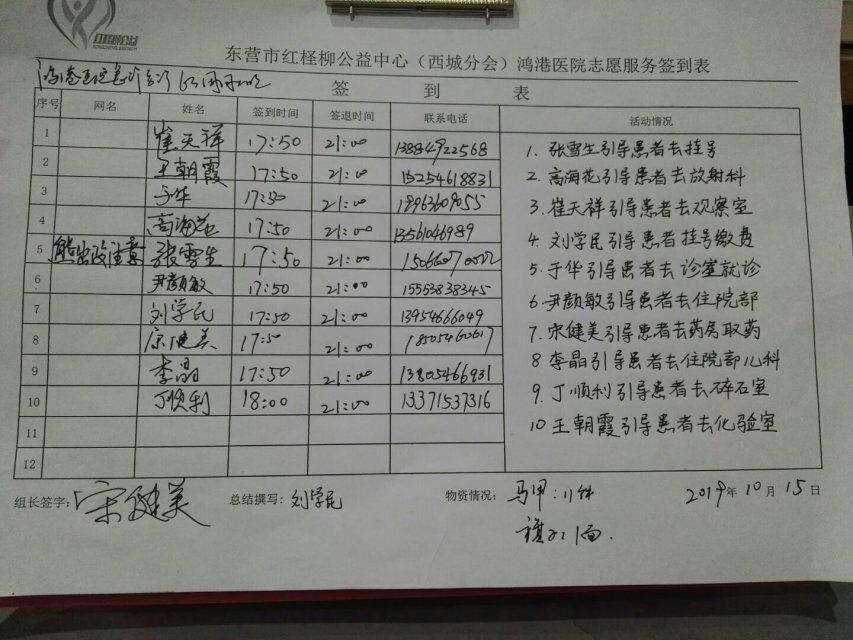 红柽柳公益
东营市红柽柳公益中心（西城分会）鸿港医院志愿服务签到表
签 到 表
序号 网名 姓名 签到时间 签退时间 联系电话 活动情况
1 崔天祥 17:50 21:00 13884922568
2 王朝霞 17:50 21:00 15254618831
3 于华 17:50 21:00 18963609055
4 高海花 17:50 21:00 13561046989
5 张雪生 17:50 21:00
6 尹颜敏 17:50 21:00 15563838345
7 刘学民 17:50 21:00 13954666049
8 宋健美 17:50 21:00
9 李晶 17:50 21:00 13805466931
10 丁顺利 18:00 21:00 13371537316
11
12
1. 张雪生引导患者去挂号
2. 高海花引导患者去放射科
3. 崔天祥引导患者去观察室
4. 刘学民引导患者挂号缴费
5. 于华引导患者去诊室就诊
6. 尹颜敏引导患者去住院部
7. 宋健美引导患者去药房取药
8 李晶引导患者去住院部儿科
9. 丁顺利引导患者去碎石室
10 王朝霞引导患者去化验室
组长签字：宋健美 总结撰写：刘学民 物资情况： 马甲：11件 2019年10月15日
旗子：1面.